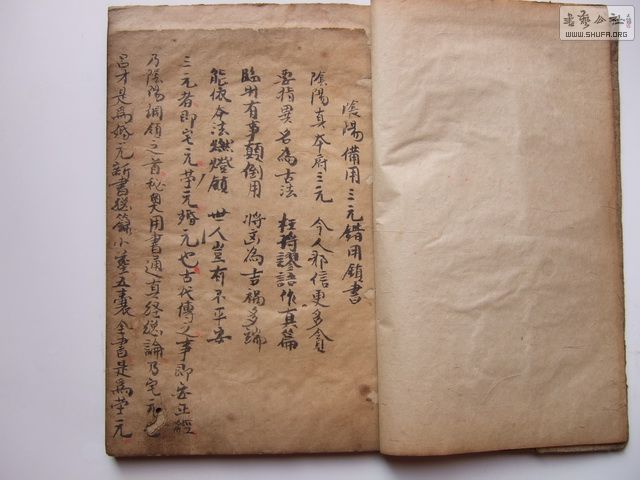 陰陽備用三元錯用鎖書
陰陽真本府三元 今人那信更多貪
要指異名為古法 枉將謬語作真篇
臨用有事顛倒用 將凶為吉禍多端
能依本法燃燈鎖 世人豈有不平安
三元者即宅元茔元婚元也古代傳之事即安正經
乃陰陽綱領之首秘奧用書通真経總論乃宅元也
呂才是為婚元新書総小五囊全書是為茔元
書藝公社
WWW.SHUFA.ORG